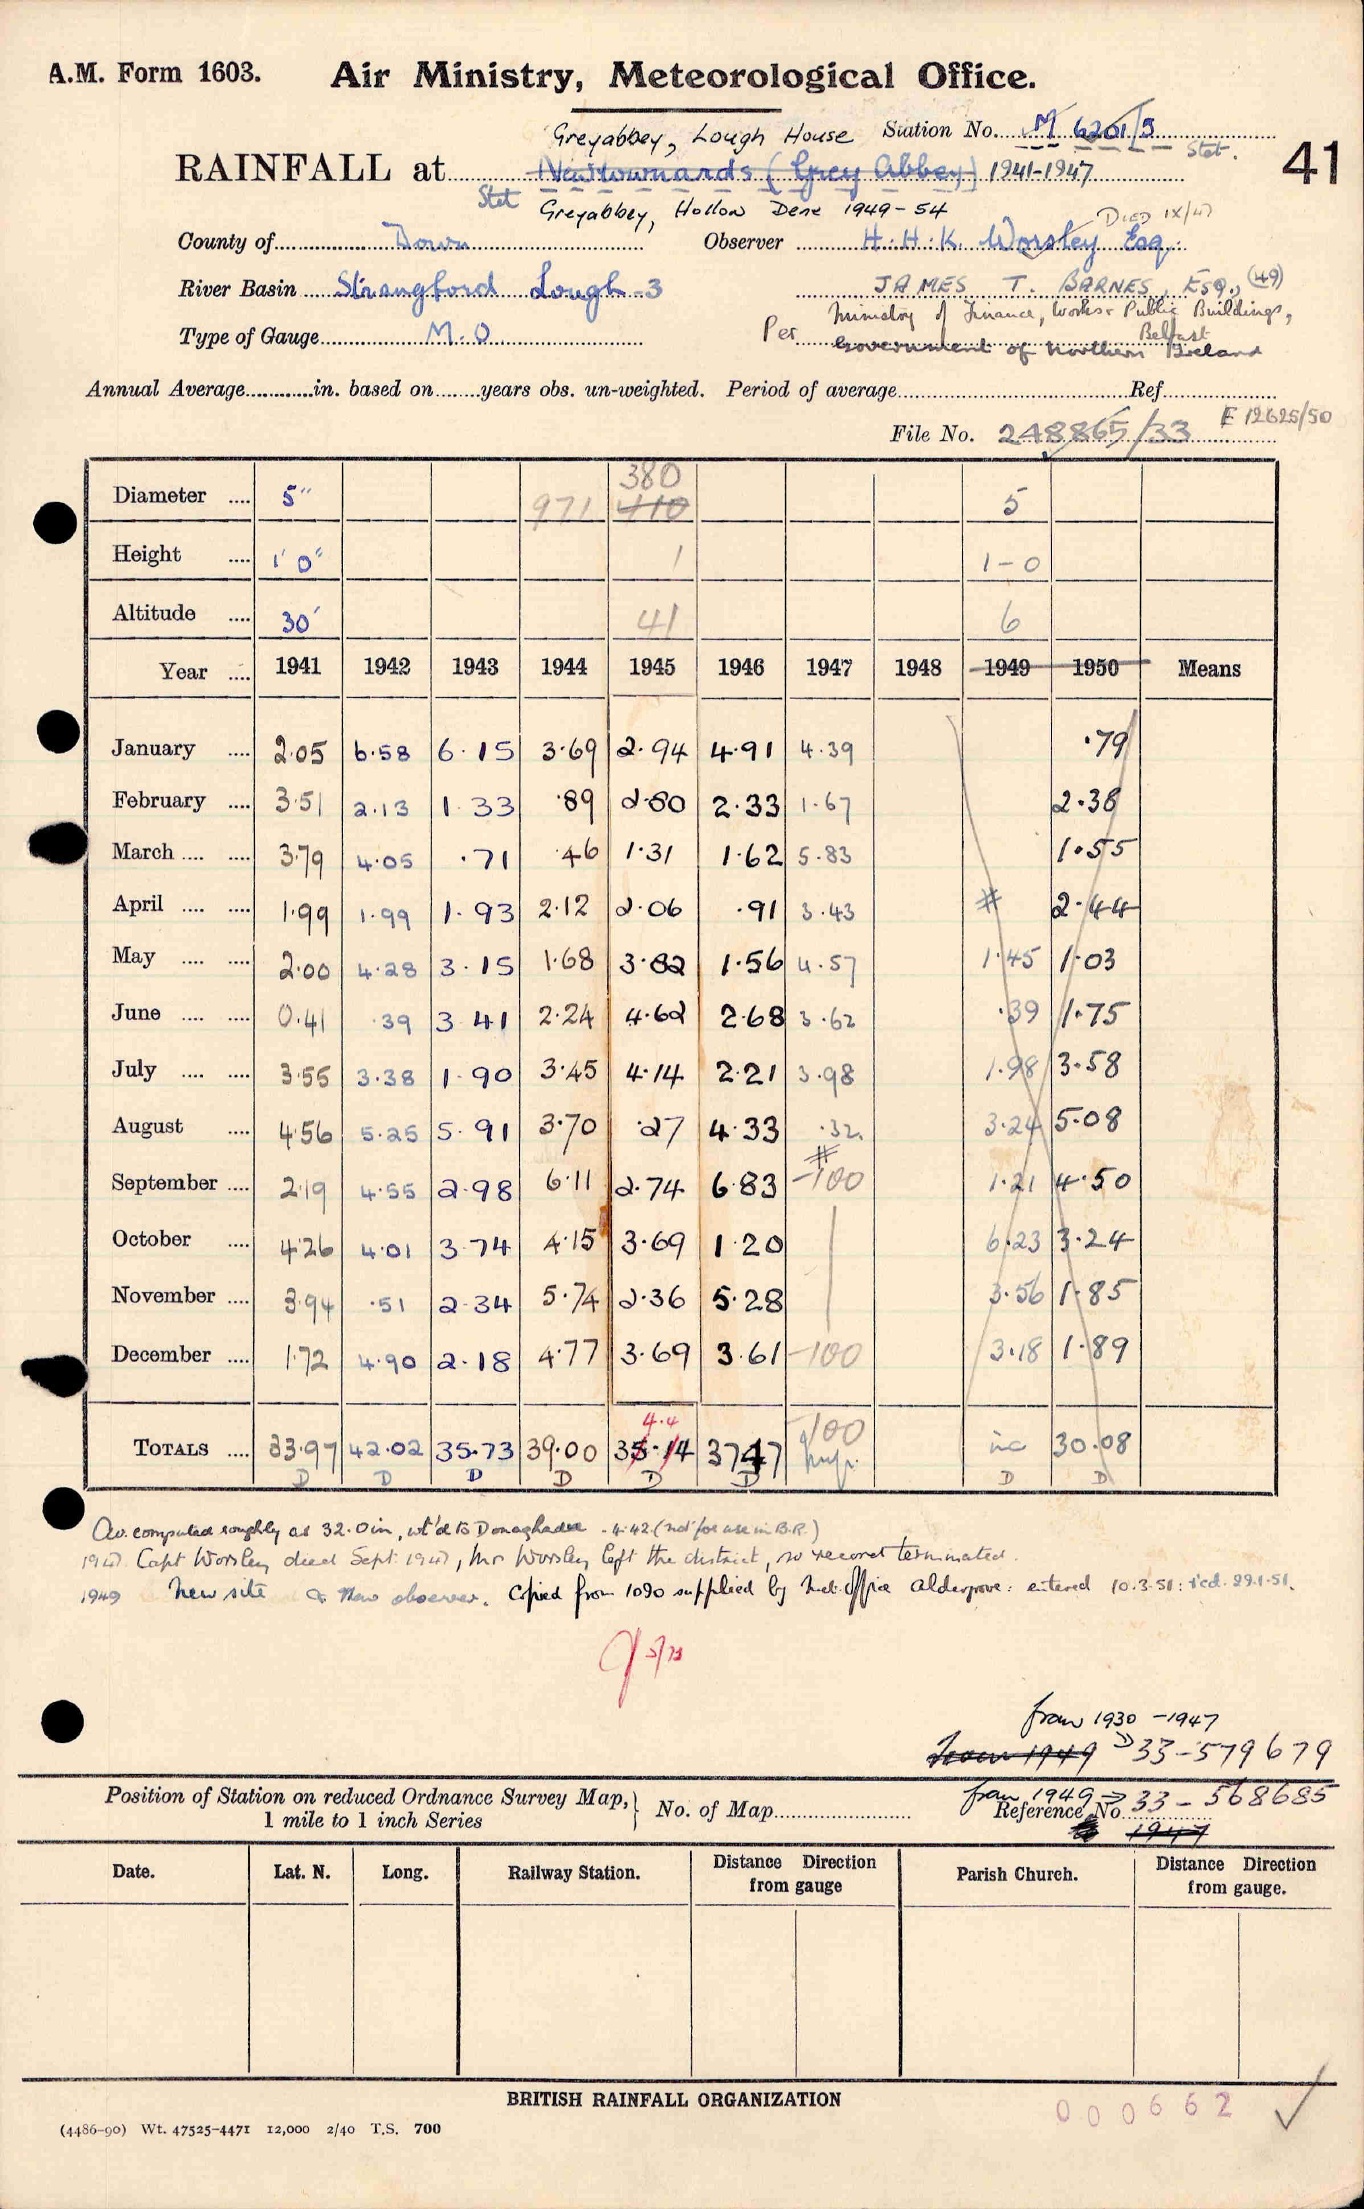 A.M. Form 1603. Air Ministry, Meteorological Office.
Greyabbey, Lough House Station No. M 6201/5
Stet.
RAINFALL at Newtownards (Grey Abbey) 1941-1947 41
Stet Greyabbey, Hollow Dene 1949-54
DIED IX/47
County of Down Observer H.H.K. Worsley Esq.
River Basin Strangford Lough -3 JAMES T. BARNES, Esq., (49)
Ministry of Finance, Works & Public Buildings,
Type of Gauge M.O Per Belfast
Government of Northern Ireland
Annual Average in. based on years obs. un-weighted. Period of average Ref
File No. 248865/33 E 12625/50
380
Diameter .... 5" 971 410 5
Height .... 1' 0" 1 1-0
Altitude .... 30' 41 6
Year .... 1941 1942 1943 1944 1945 1946 1947 1948 1949 1950 Means
January .... 2.05 6.58 6.15 3.69 2.94 4.91 4.39 .79
February .... 3.51 2.13 1.33 .89 2.80 2.33 1.67 2.38
March .... .... 3.79 4.05 .71 .46 1.31 1.62 5.83 1.55
April .... .... 1.99 1.99 1.93 2.12 2.06 .91 3.43 # 2.44
May .... .... 2.00 4.28 3.15 1.68 3.82 1.56 4.57 1.45 1.03
June .... .... 0.41 .39 3.41 2.24 4.62 2.68 3.62 .39 1.75
July .... .... 3.55 3.38 1.90 3.45 4.14 2.21 3.98 1.98 3.58
August .... 4.56 5.25 5.91 3.70 .27 4.33 .32 3.24 5.08
#
September .... 2.19 4.55 2.98 6.11 2.74 6.83 -100 1.21 4.50
October .... 4.26 4.01 3.74 4.15 3.69 1.20 6.23 3.24
November .... 3.94 .51 2.34 5.74 2.36 5.28 3.56 1.85
December .... 1.72 4.90 2.18 4.77 3.69 3.61 -100 3.18 1.89
4.4 -100
TOTALS .... 33.97 42.02 35.73 39.00 35.14 37.47 inc 30.08
D D D D D D D D
Av. computed roughly as 32.0in, wt'd to Donaghadee -4.42 (not for use in B.R.)
1947 Capt Worsley died Sept 1947, Mr Worsley left the district, so record terminated.
1949 New site & New observer. Copied from 1090 supplied by Met. Office Aldergrove: entered 10.3.51: rcd. 29.1.51.
5/73
from 1930 -1947
from 1949 → 33-579679
Position of Station on reduced Ordnance Survey Map, from 1949 → 33-568685
1 mile to 1 inch Series No. of Map Reference No
1947
Date. Lat. N. Long. Railway Station. Distance Direction from gauge Parish Church. Distance Direction from gauge.
BRITISH RAINFALL ORGANIZATION
000662
(4486-90) Wt. 47525-4471 12,000 2/40 T.S. 700